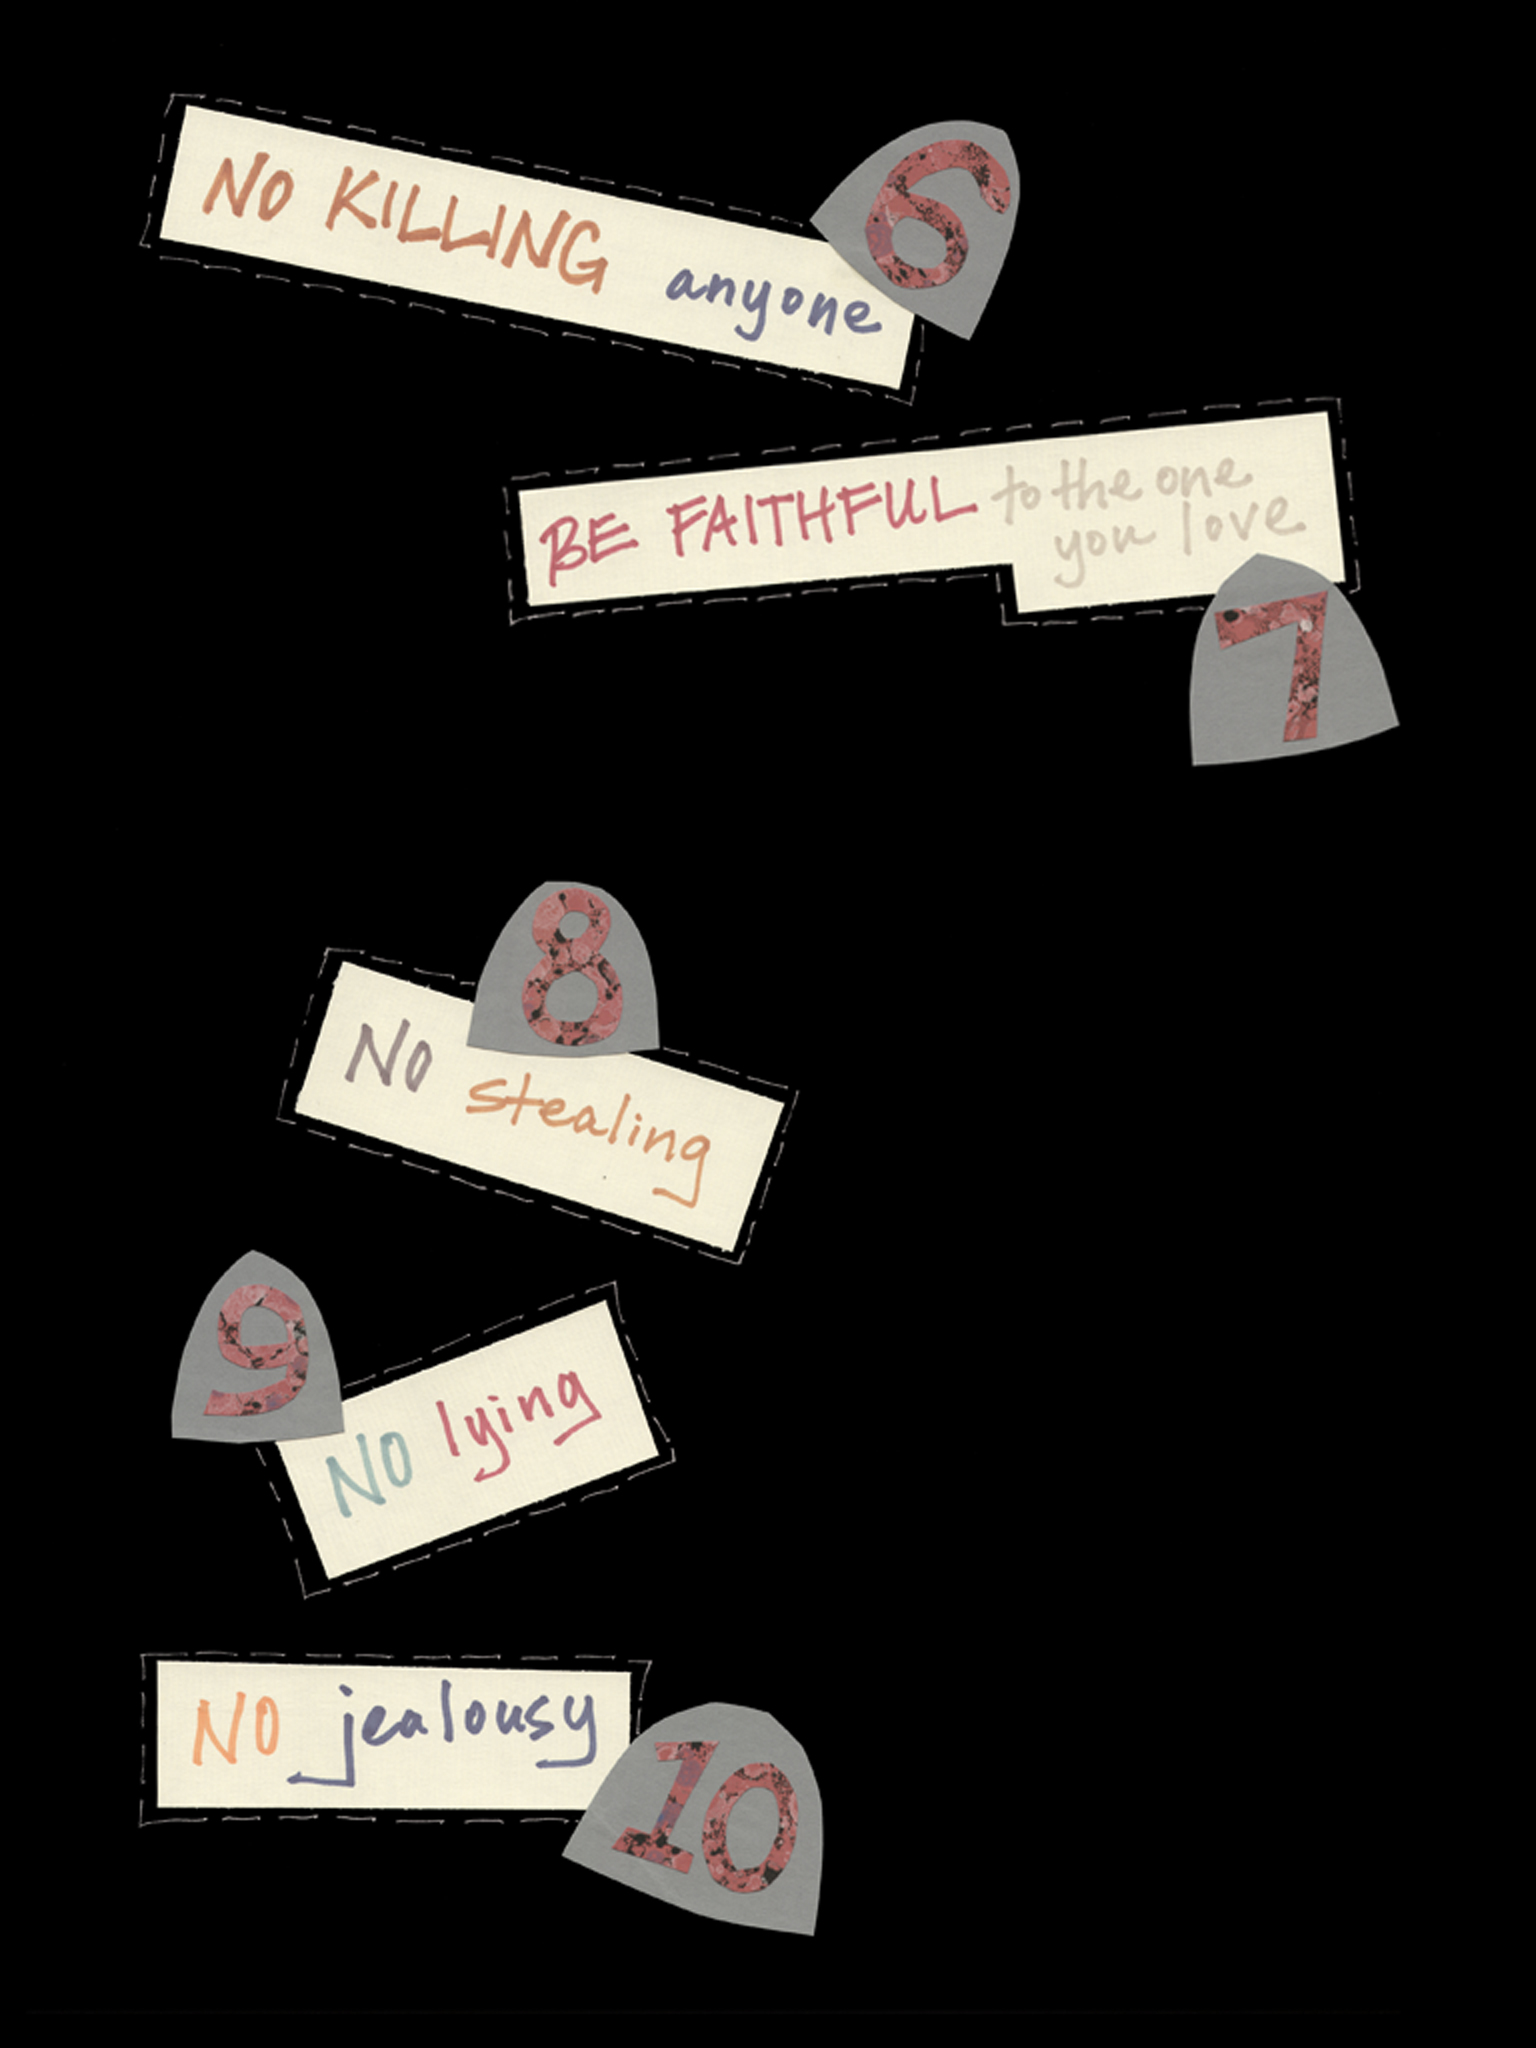 NO KILLING anyone
6
BE FAITHFUL to the one
you love
7
8
NO stealing
9
NO lying
NO jealousy
10